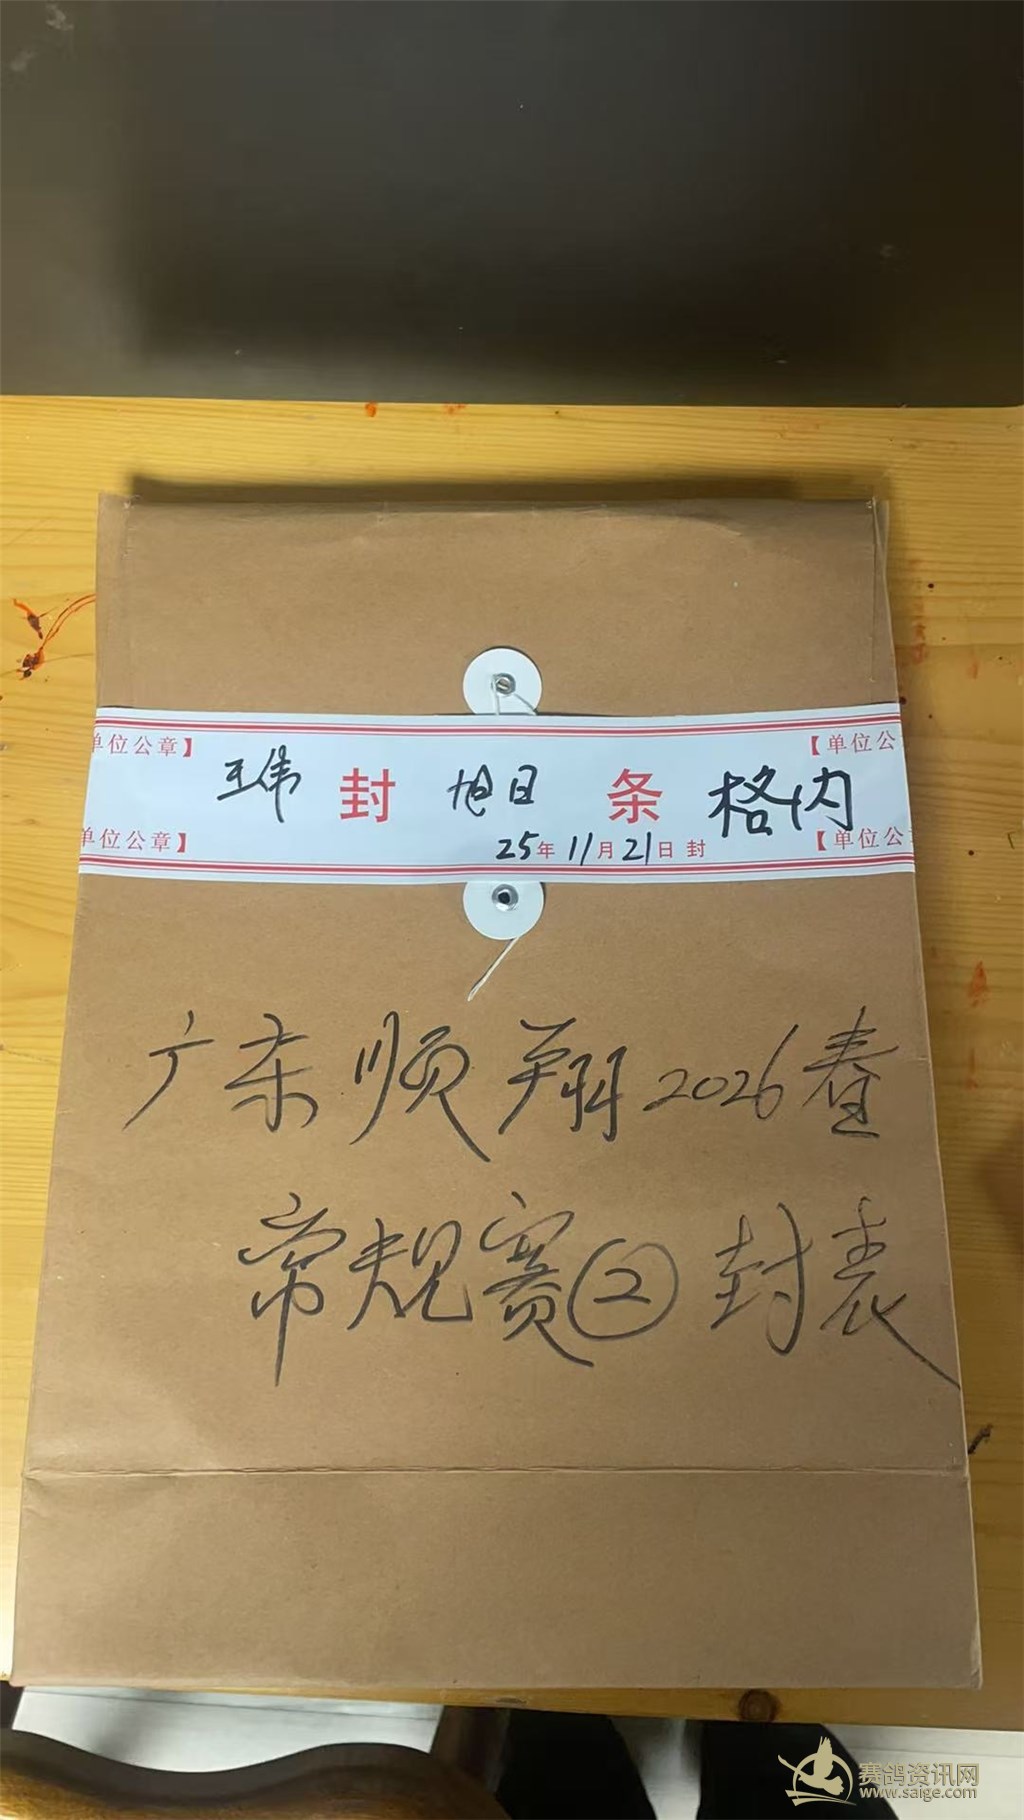 单位公章】
【单位公
王伟 封 旭日 条 格内
25年11月21日 封
单位公章】
【单位公
广东顺翔2026春
常规赛②封表
赛鸽资讯网
www.saige.com